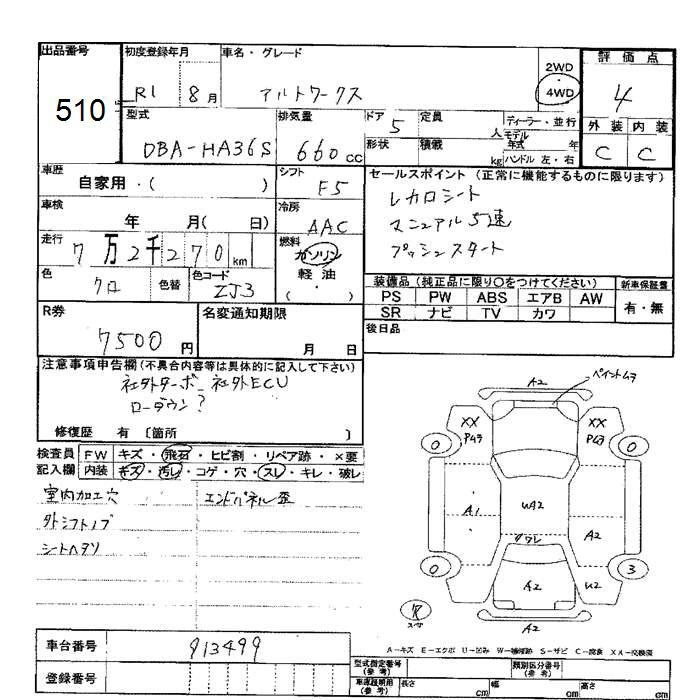 出品番号
510
初度登録年月
R1 8月
車名・グレード
アルトワークス
2WD
4WD
評価点
4
型式
DBA-HA36S
排気量
660 cc
ドア 5
定員
人
ディーラー・並行
モデル年式 年
形状
積載
kg
ハンドル 左・右
外装 内装
C C
車歴
自家用・( )
シフト
F5
セールスポイント(正常に機能するものに限ります)
レカロシート
マニュアル5速
プッシュスタート
車検
年 月( 日)
冷房
AAC
走行
7万2千270km
燃料
ガソリン
軽油
( )
色
クロ
色替
色コード
ZJ3
装備品(純正品に限り○をつけてください)
新車保証書
PS PW ABS エアB AW
SR ナビ TV カワ
有・無
R券
7500円
名変通知期限
月 日
後日品
注意事項申告欄(不具合内容等は具体的に記入して下さい)
社外ターボ 社外ECU
ローダウン?
修復歴 有 〔箇所 〕
検査員記入欄
FW キズ・飛石・ヒビ割・リペア跡・×要
内装 キズ・汚レ・コゲ・穴・スレ・キレ・破レ
室内加工穴
エンドパネル歪
外シフトノブ
シートヘタリ
A2
ペイントムラ
XX
XX
0
0
A1
UA2
A2
ワレ
0
3
A2
U2
A2
スペア
A-キズ E-エクボ U-凹み W-補修跡 S-サビ C-腐食 XX-交換済
車台番号
913499
登録番号
型式指定番号(参考)
類別区分番号(参考)
車庫証明用(参考)
長さ cm
幅 cm
高さ cm